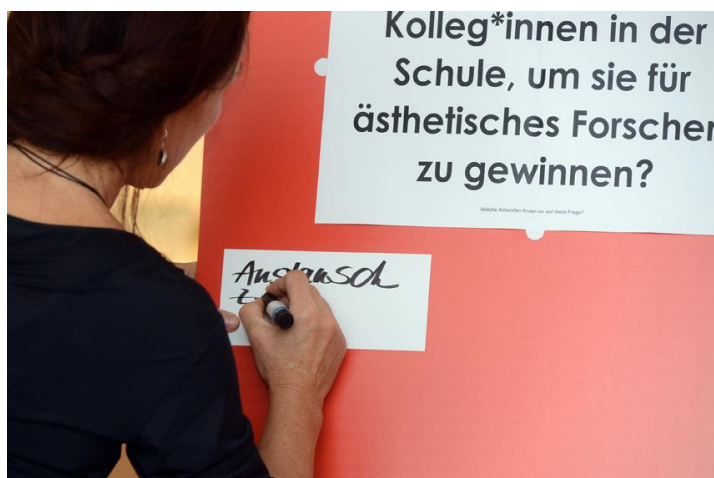 Kolleg*innen in der
Schule, um sie für
ästhetisches Forschen
zu gewinnen?
Welche Antworten finden wir auf diese Frage?
Austausch